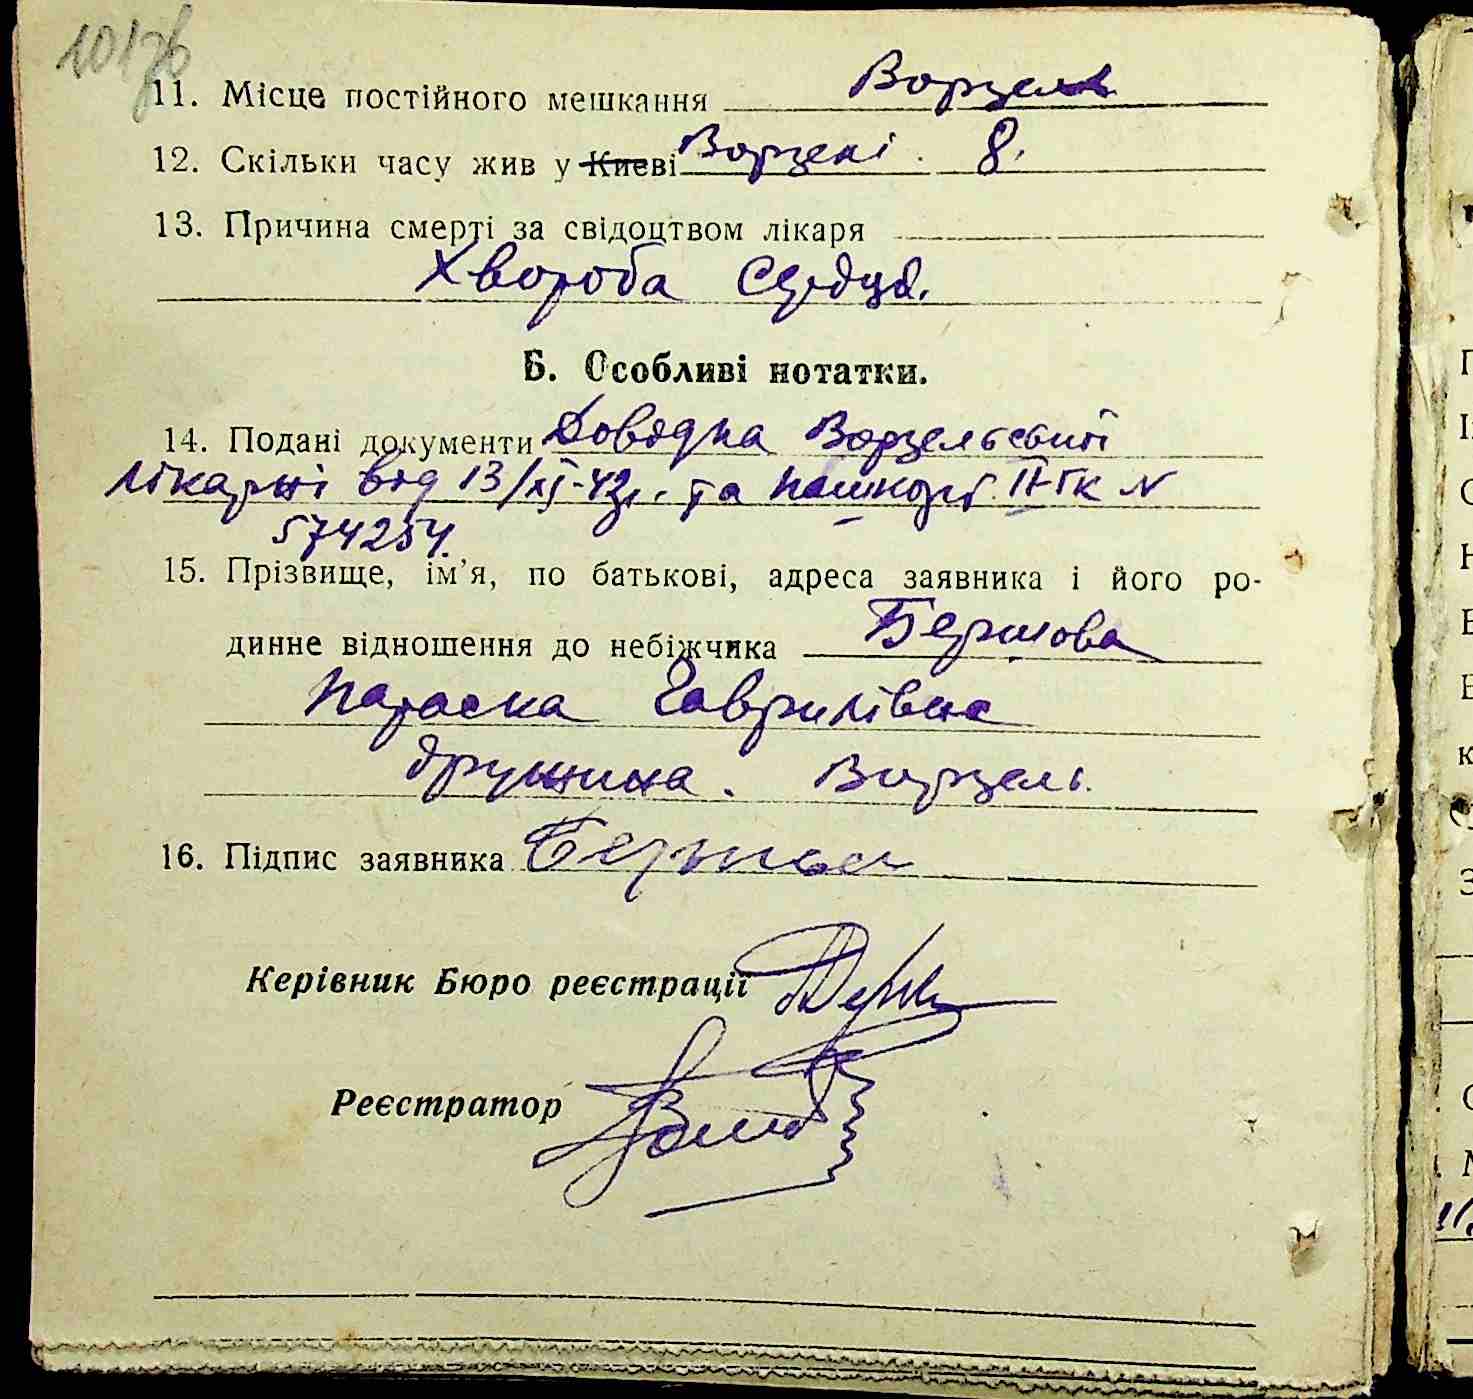 10176
11. Місце постійного мешкання Ворзель
12. Скільки часу жив у Києві Ворзелі. 8.
13. Причина смерті за свідоцтвом лікаря
Хвороба серця.
Б. Особливі нотатки.
14. Подані документи Довідка Ворзельської
лікарні від 13/XI-42р. та пашпорт II-ГК N
574254.
15. Прізвище, ім'я, по батькові, адреса заявника і його ро-
динне відношення до небіжчика Бершова
Параска Гаврилівна
дружина. Ворзель.
16. Підпис заявника
Керівник Бюро реєстрації
Реєстратор